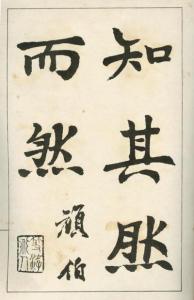 知其然
而然
頑伯